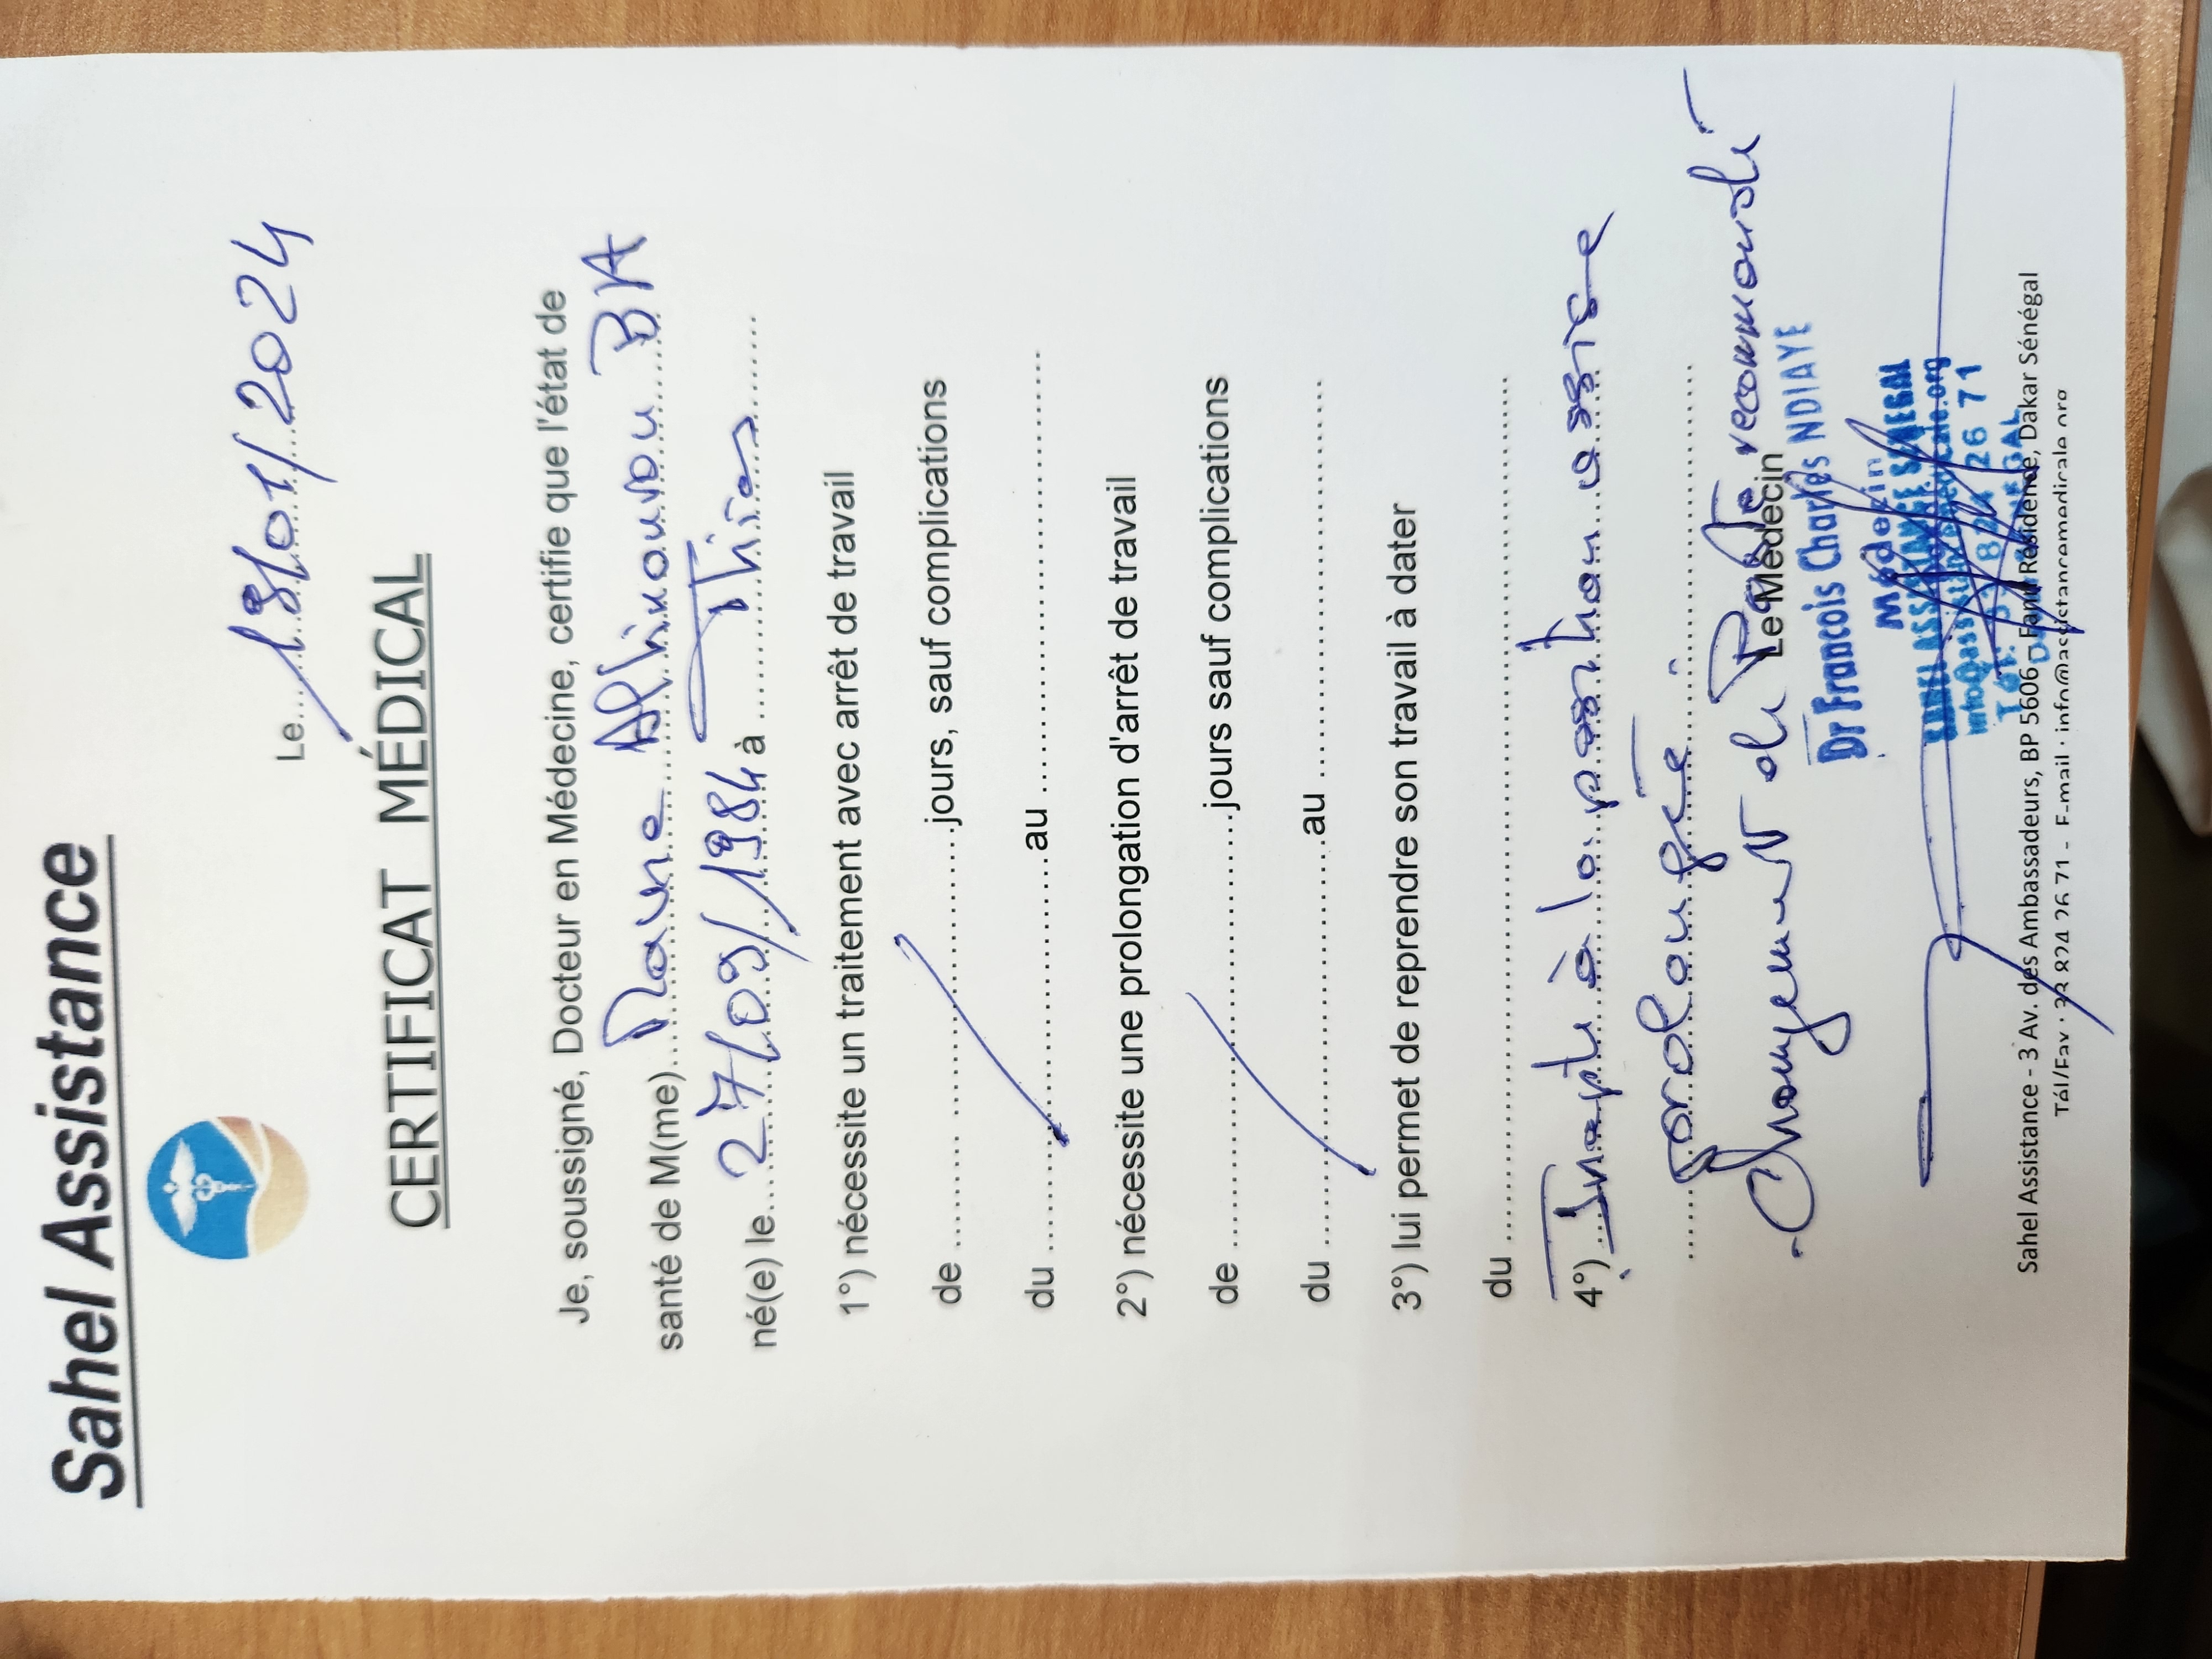 Sahel Assistance
Le 19/01/2024
CERTIFICAT MÉDICAL
Je, soussigné, Docteur en Médecine, certifie que l'état de
santé de M(me) BA
né(e) le 27/09/1984 à Thiès
1°) nécessite un traitement avec arrêt de travail
de .................... jours, sauf complications
du .................... au ....................
2°) nécessite une prolongation d'arrêt de travail
de .................... jours sauf complications
du .................... au ....................
3°) lui permet de reprendre son travail à dater
du ....................
4°) Inapte à la position assise
prolongée
- Changement de Poste recommandé
Le Médecin
Dr Francois Charles NDIAYE
Médecin
SAHEL ASSISTANCE SENEGAL
Tél: 33 824 26 71
Sahel Assistance - 3 Av. des Ambassadeurs, BP 5606 – Fann Résidence, Dakar Sénégal
Tél/Fax : 33 824 26 71 - E-mail : info@assistancemedicale.org